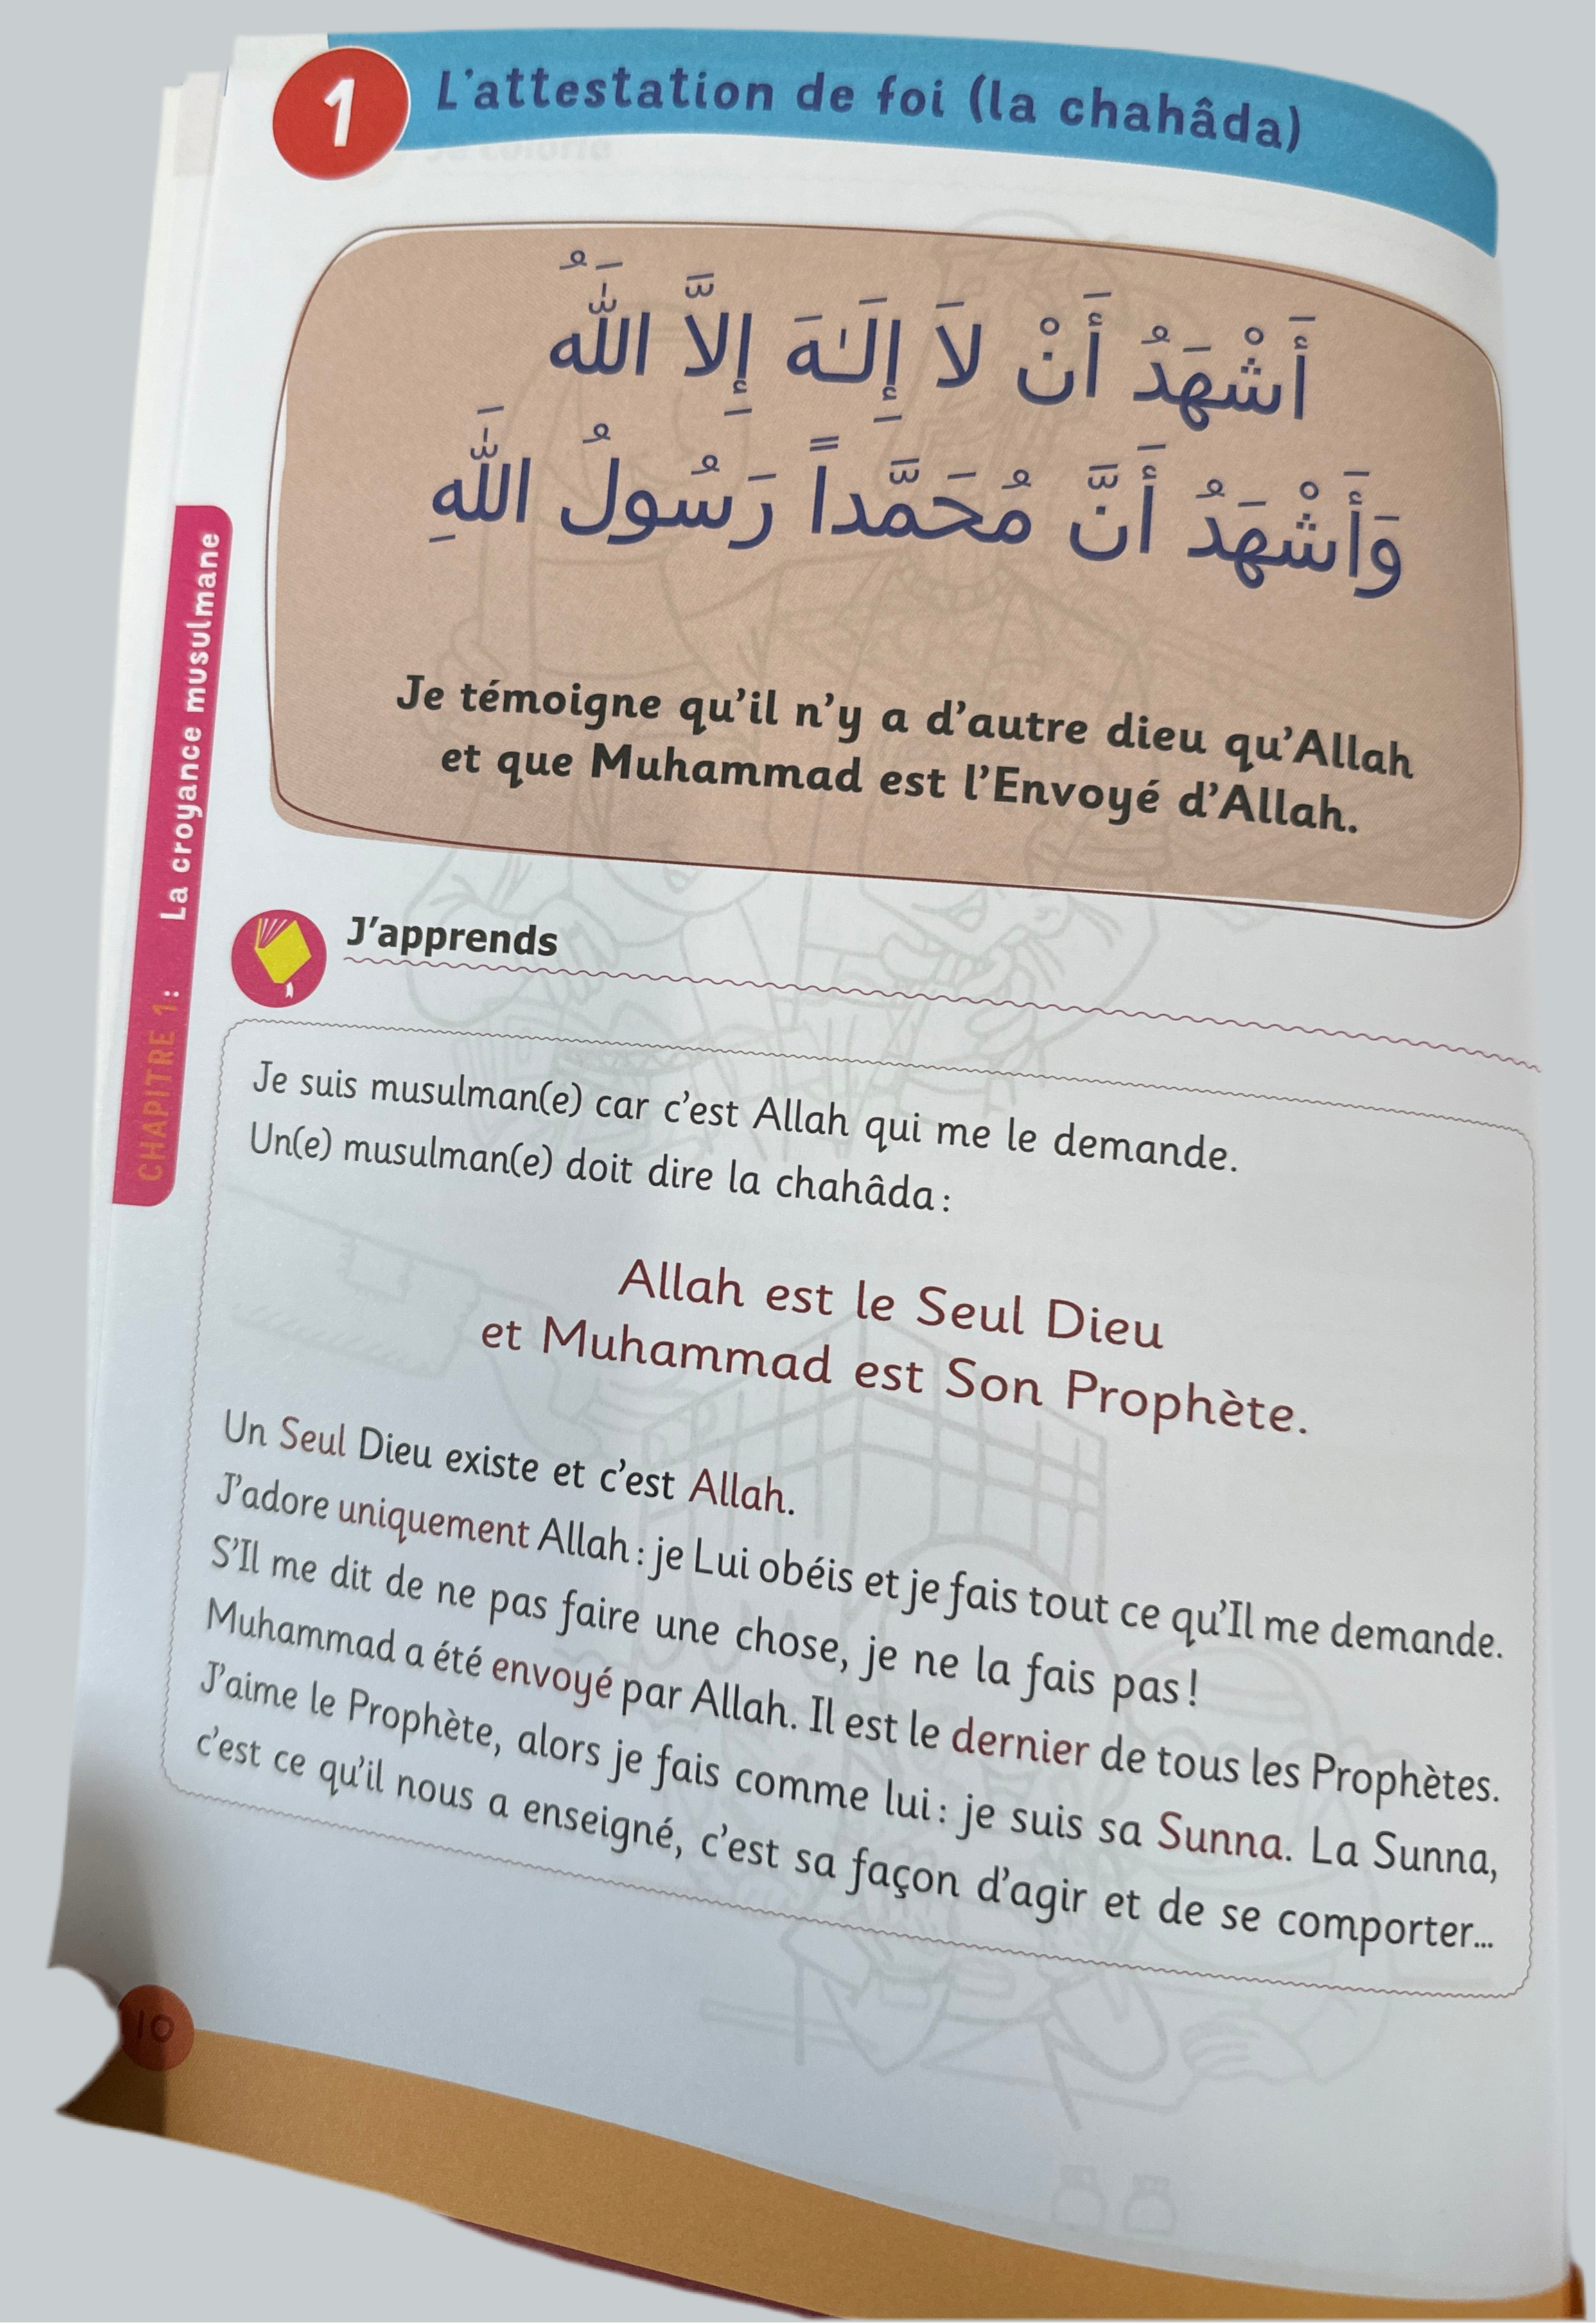 1
L'attestation de foi (la chahâda)
أَشْهَدُ أَنْ لاَ إِلَـٰهَ إِلاَّ اللَّهُ
وَأَشْهَدُ أَنَّ مُحَمَّداً رَسُولُ اللَّهِ
Je témoigne qu'il n'y a d'autre dieu qu'Allah
et que Muhammad est l'Envoyé d'Allah.
CHAPITRE 1: La croyance musulmane
J'apprends
Je suis musulman(e) car c'est Allah qui me le demande.
Un(e) musulman(e) doit dire la chahâda:
Allah est le Seul Dieu
et Muhammad est Son Prophète.
Un Seul Dieu existe et c'est Allah.
J'adore uniquement Allah: je Lui obéis et je fais tout ce qu'Il me demande.
S'Il me dit de ne pas faire une chose, je ne la fais pas!
Muhammad a été envoyé par Allah. Il est le dernier de tous les Prophètes.
J'aime le Prophète, alors je fais comme lui: je suis sa Sunna. La Sunna,
c'est ce qu'il nous a enseigné, c'est sa façon d'agir et de se comporter...
10